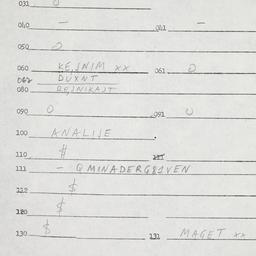 031 0
040 — 041 —
050 0
060 KEJNIM XX 061 0
062 DUXNT
080 BEJNIKAJT
090 0 091 0
100 ANALIJE
110 #
111 — GMINADERG81VEN
112 $
120 $
130 $ 131 MAGET XX